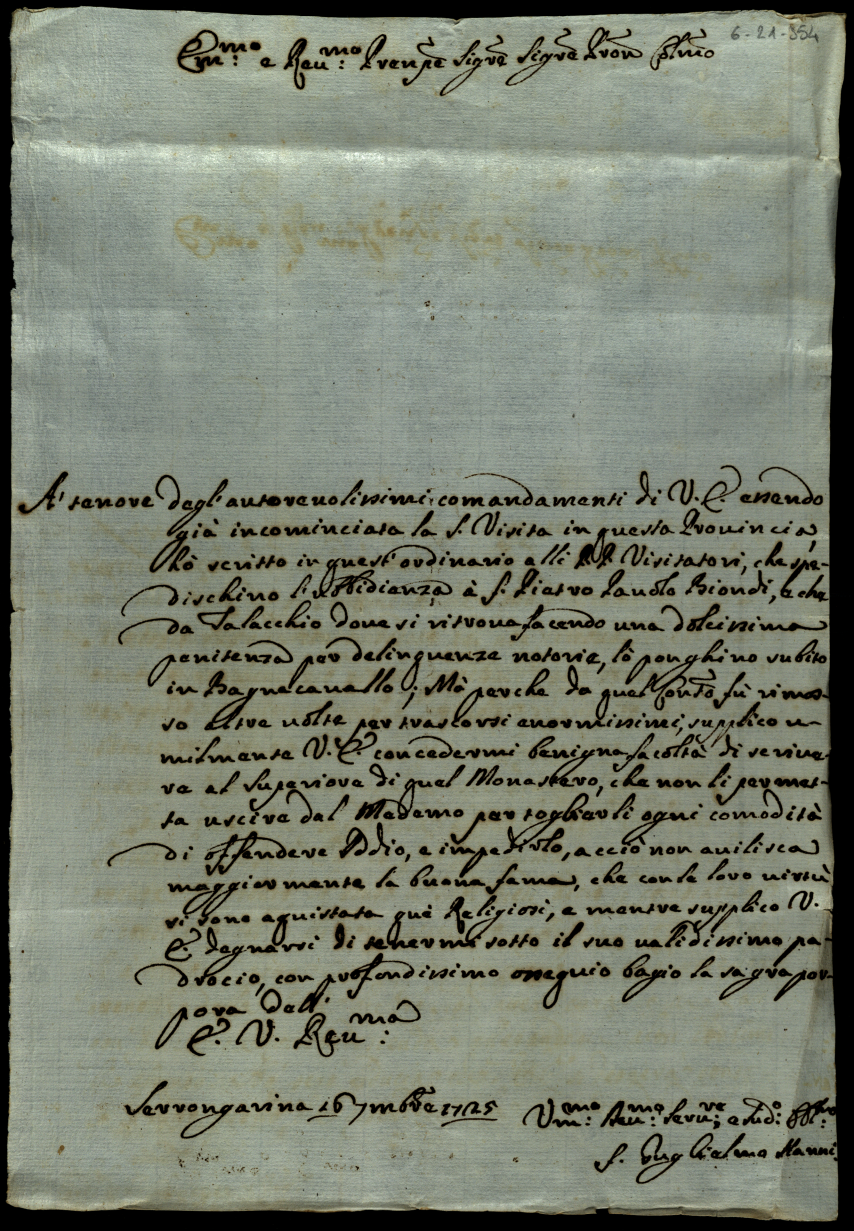 6-21-354
Em:mo e Reu:mo Prenpe Sigre Sigre Pron Colmo
A' tenore degl'autoreuolissimi comandamenti di V. E. essendo
già incominciata la S. Visita in questa Prouincia,
hò scritto in quest'ordinario alli PP Visitatori, che spe-
dischino l'vbbidienza à f. Pietro Pauolo Biondi, e che
da Talacchio doue si ritroua facendo una dolcissima
penitenza per delinquenze notorie, lò ponghino subito
in Bagnacauallo; Mà perche da quel Conto fù rimos-
so altre uolte per trascorsi enormissimi, supplico u-
milmente V. E. concedermi benigna facoltà di scriue-
re al Superiore di quel Monastero, che non li permet-
ta uscire dal Medemo per togliarli ogni comodità
di offendere Iddio, e impedirlo, acciò non auilisca
maggiormente la buona fama, che con le loro uirtù
si sono aquistata què Religiosi, e mentre supplico V.
E. degnarsi di tenermi sotto il suo ualidissimo pa-
drocio, con profondissimo ossequio bagio la sagra por-
pora dell'
E. V. Reu:ma
Serrongarina 16 7mbre 1725
Um:mo Deu:mo Seru:re e Sud:o
f. Guglielmo Nanni